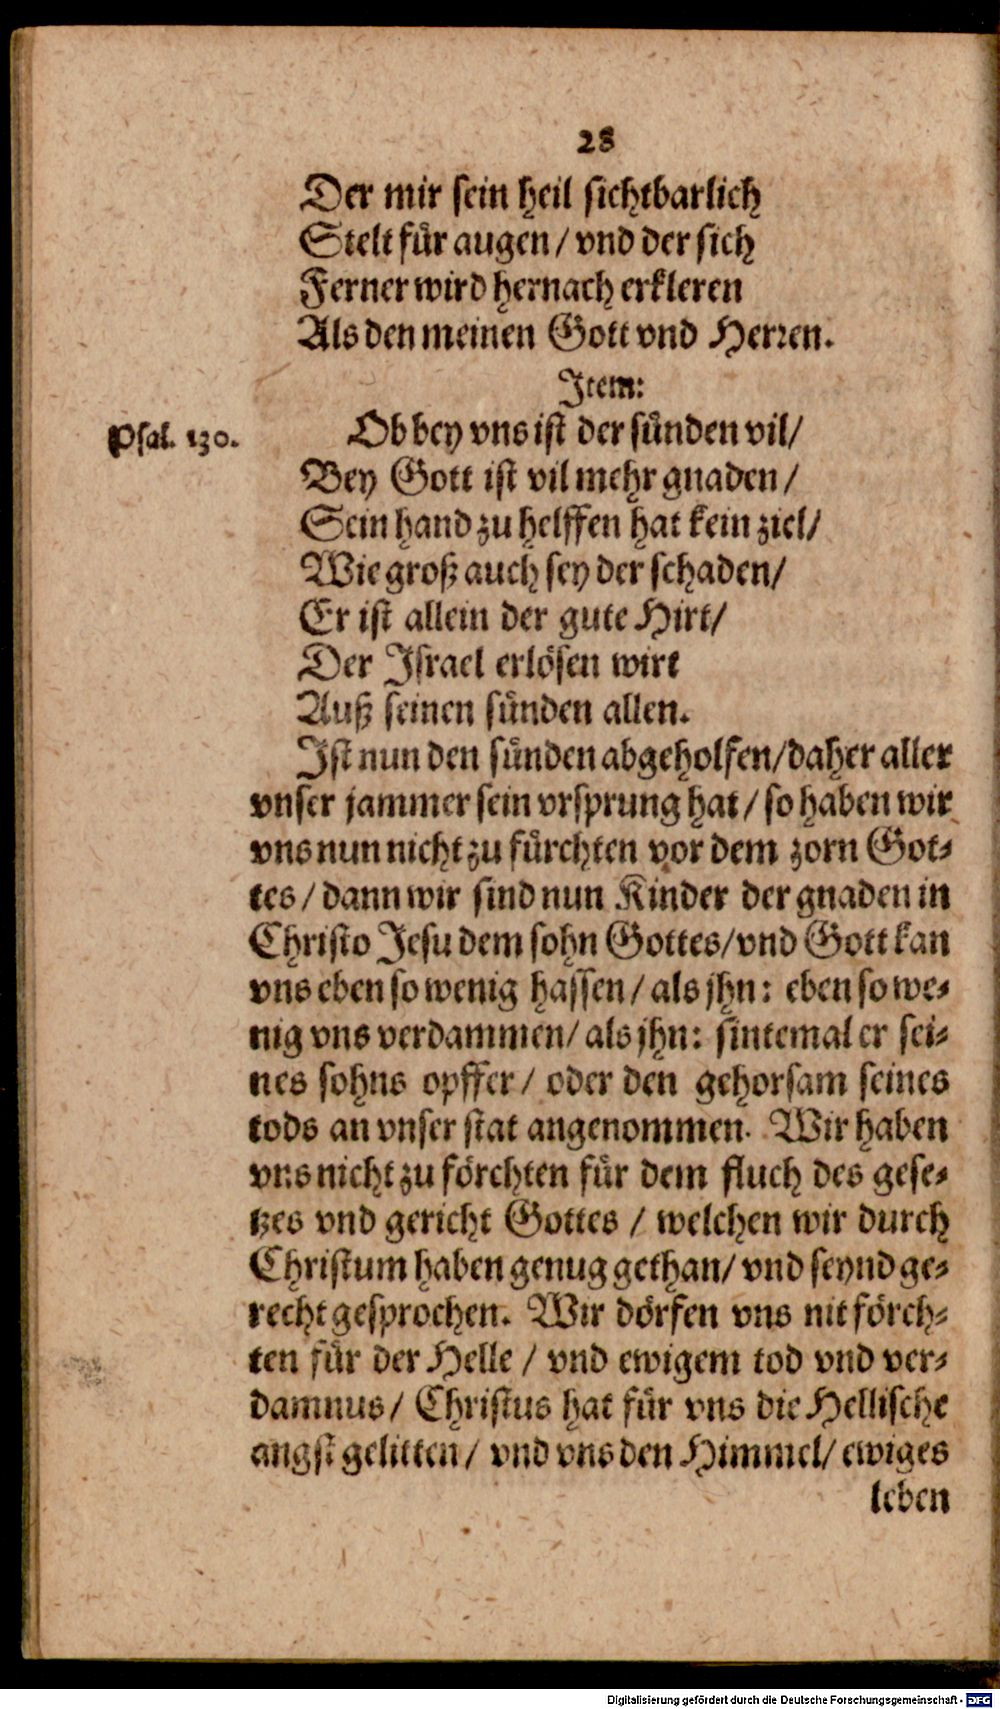 28
Der mir sein heil sichtbarlich
Stelt für augen / vnd der sich
Ferner wird hernach erkleren
Als den meinen Gott vnd Herren.
Item:
Psal. 130.
Ob bey vns ist der sünden vil /
Bey Gott ist vil mehr gnaden /
Sein hand zu helffen hat kein ziel /
Wie groß auch sey der schaden /
Er ist allein der gute Hirt /
Der Israel erlösen wirt
Auß seinen sünden allen.
Ist nun den sünden abgeholfen / daher aller
vnser jammer sein vrsprung hat / so haben wir
vns nun nicht zu fürchten vor dem zorn Got-
tes / dann wir sind nun Kinder der gnaden in
Christo Jesu dem sohn Gottes / vnd Gott kan
vns eben so wenig hassen / als jhn: eben so we-
nig vns verdammen / als jhn: sintemal er sei-
nes sohns opffer / oder den gehorsam seines
tods an vnser stat angenommen. Wir haben
vns nicht zu förchten für dem fluch des gese-
tzes vnd gericht Gottes / welchen wir durch
Christum haben genug gethan / vnd seynd ge-
recht gesprochen. Wir dörfen vns nit förch-
ten für der Helle / vnd ewigem tod vnd ver-
damnus / Christus hat für vns die Hellische
angst gelitten / vnd vns den Himmel / ewiges
leben
Digitalisierung gefördert durch die Deutsche Forschungsgemeinschaft - DFG